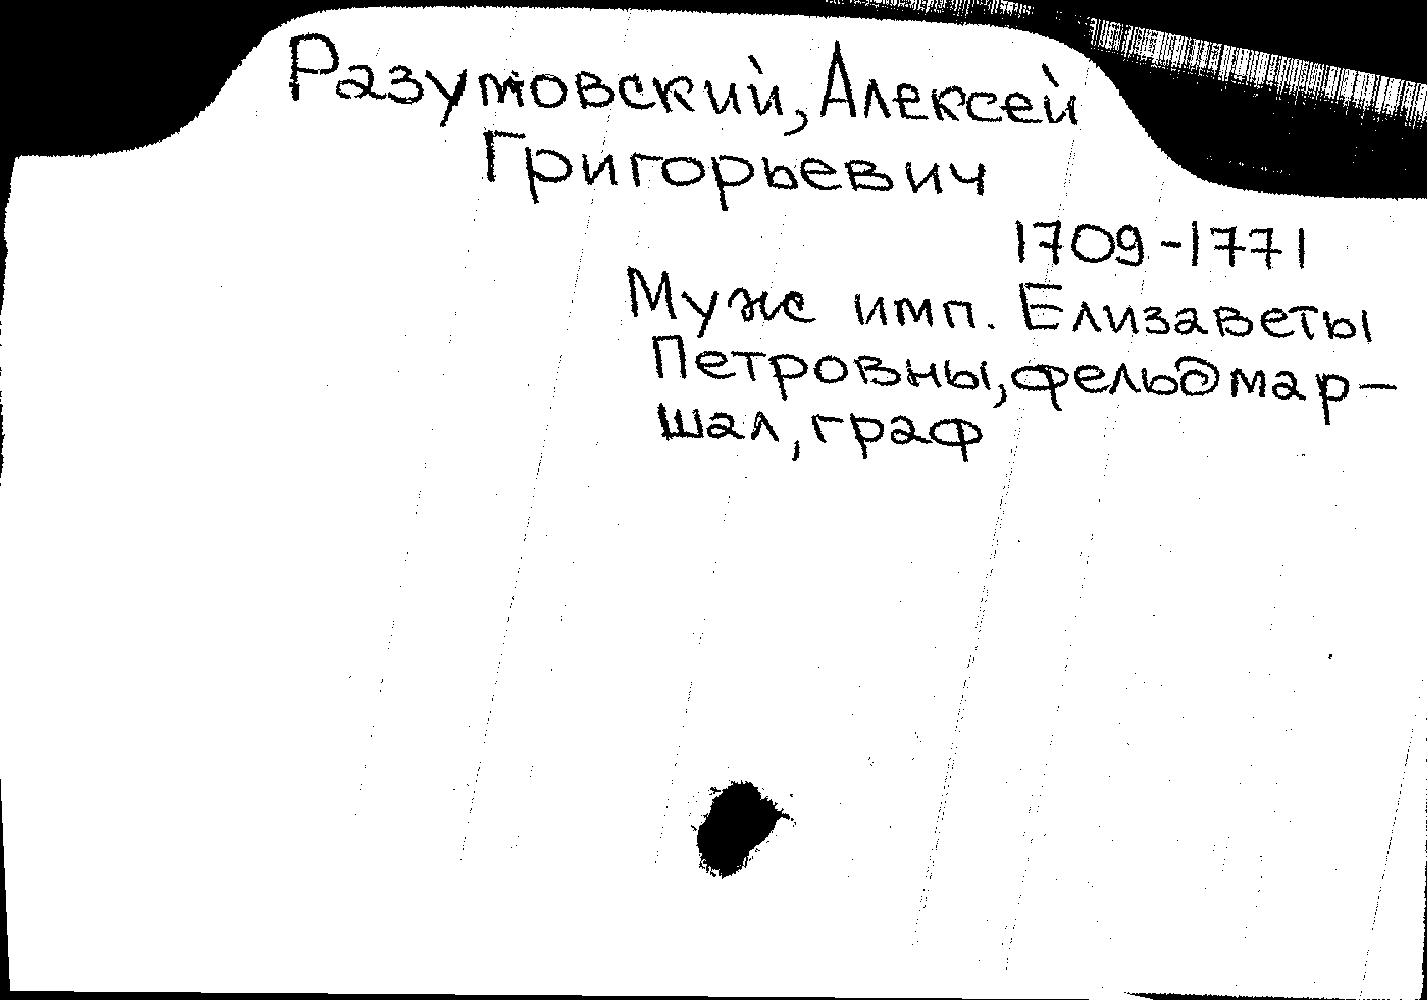 Разумовский, Алексей
Григорьевич
1709-1771
Муж имп. Елизаветы
Петровны, фельдмар-
шал, граф